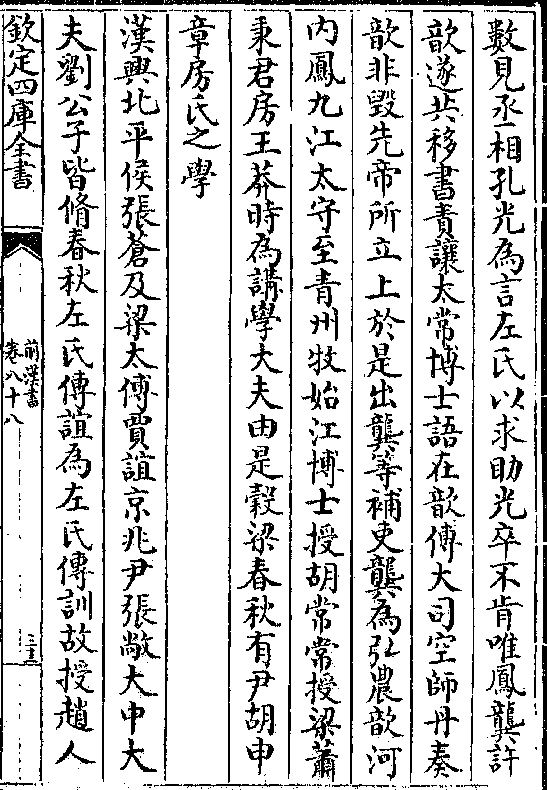 數見丞相孔光為言左氏以求助光卒不肯唯鳳龔許
歆遂共移書責讓太常博士語在歆傳大司空師丹奏
歆非毀先帝所立上於是出龔等補吏龔為弘農歆河
内鳳九江太守至青州牧始江博士授胡常常授梁蕭
秉君房王莽時為講學大夫由是穀梁春秋有尹胡申
章房氏之學
漢興北平侯張蒼及梁太傅賈誼京兆尹張敞大中大
夫劉公子皆脩春秋左氏傳誼為左氏傳訓故授趙人
欽定四庫全書
前漢書
卷八十八